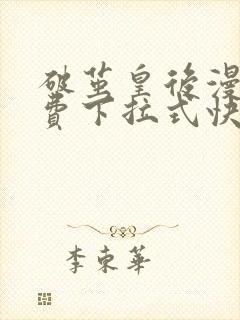 破茧皇後漫
費下拉式快
李東華